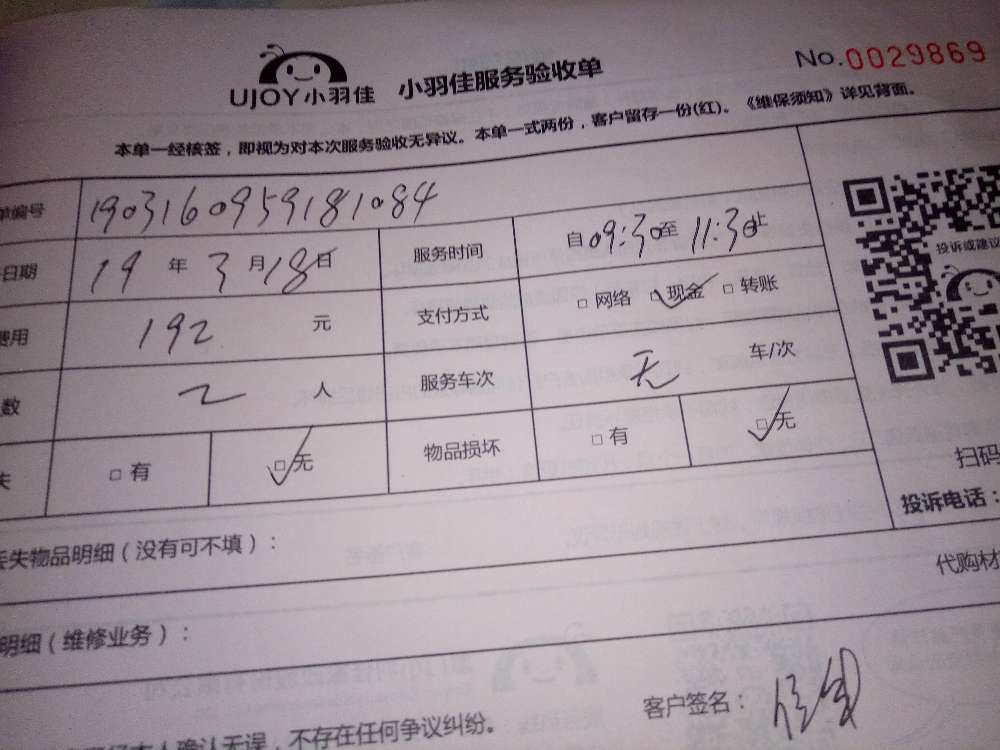 UJOY小羽佳 小羽佳服务验收单 No.0029869
本单一经核签，即视为对本次服务验收无异议。本单一式两份，客户留存一份(红)。《维保须知》详见背面。
单编号 1903160959181084
日期 19 年 3 月 18 日 服务时间 自 09:30 至 11:30 止
费用 192 元 支付方式 □ 网络 ☑ 现金 □ 转账
数 2 人 服务车次 无 车/次
失 □ 有 ☑ 无 物品损坏 □ 有 ☑ 无
投诉或建议
扫码
投诉电话：
丢失物品明细（没有可不填）：
代购材
明细（维修业务）：
客户签名：
本人确认无误，不存在任何争议纠纷。